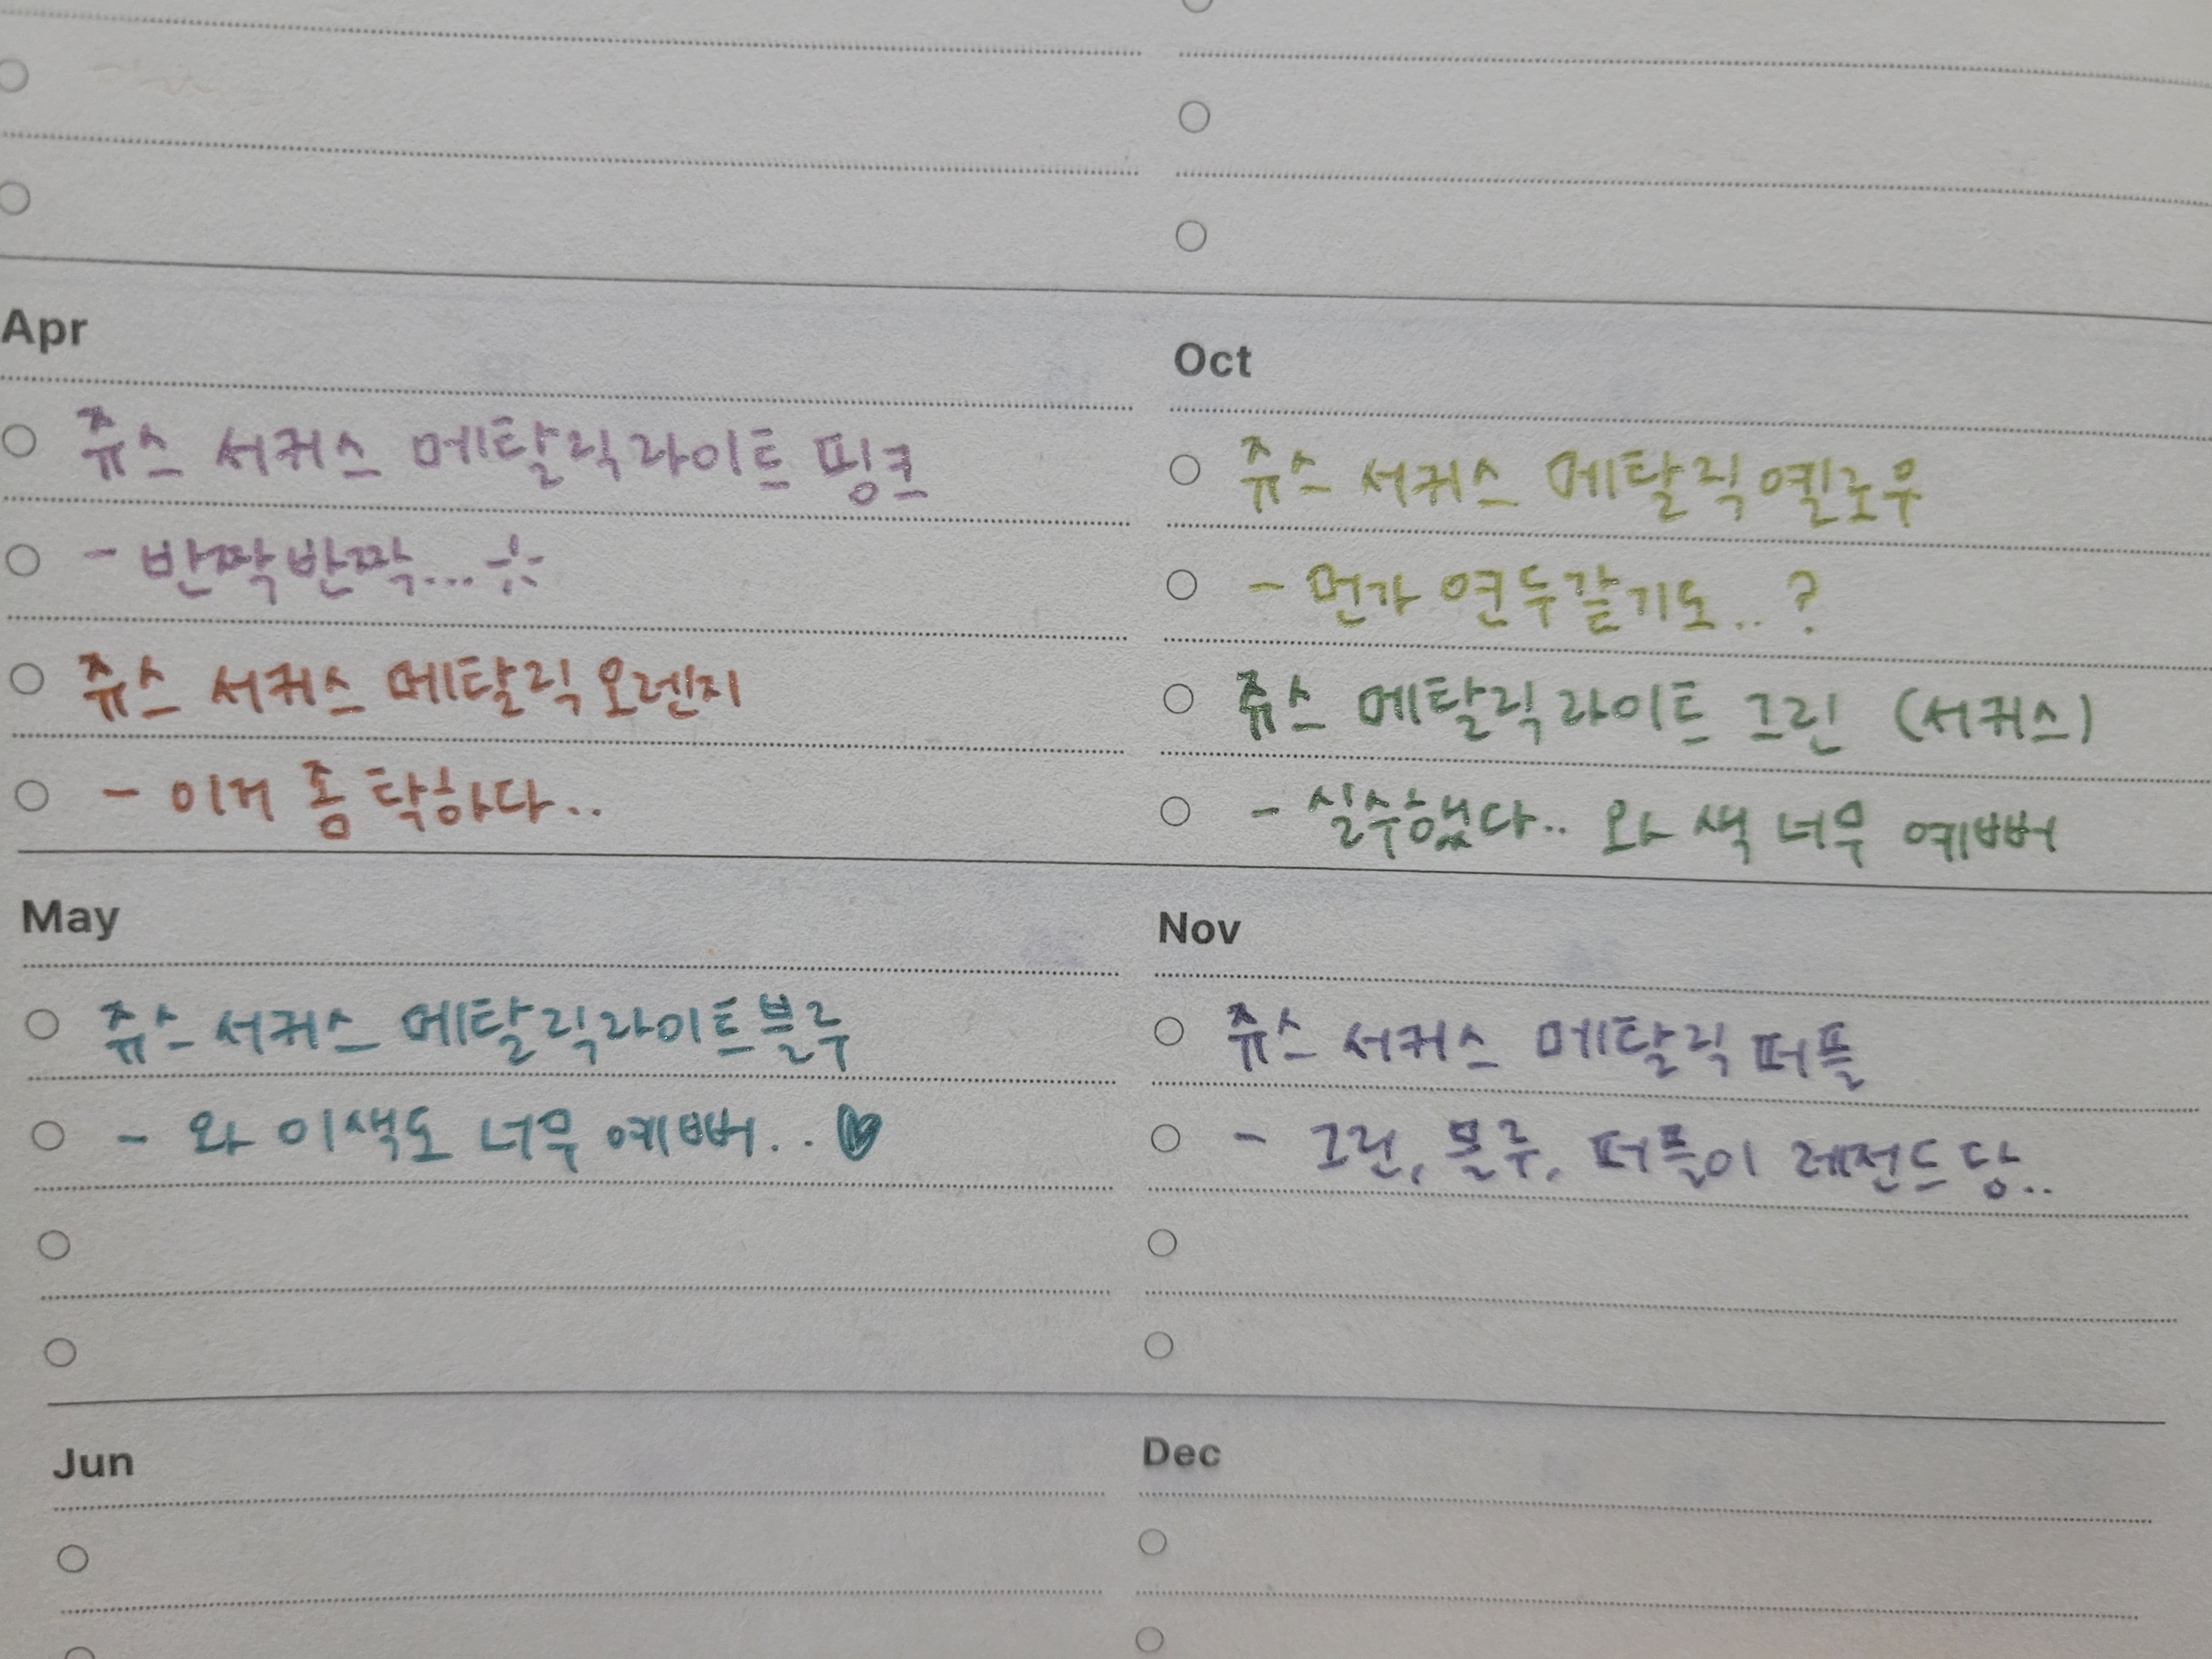 Apr
쥬스 서커스 메탈릭라이트 핑크
- 반짝반짝...
쥬스 서커스 메탈릭오렌지
- 이거 좀 탁하다..
May
쥬스 서커스 메탈릭라이트블루
- 와 이색도 너무 예뻐..♥
Jun
Oct
쥬스 서커스 메탈릭옐로우
- 먼가 연두같기도..?
쥬스 메탈릭라이트 그린 (서커스)
- 실수했다.. 와 색 너무 예뻐
Nov
쥬스 서커스 메탈릭 퍼플
- 그린, 블루, 퍼플이 레전드당..
Dec